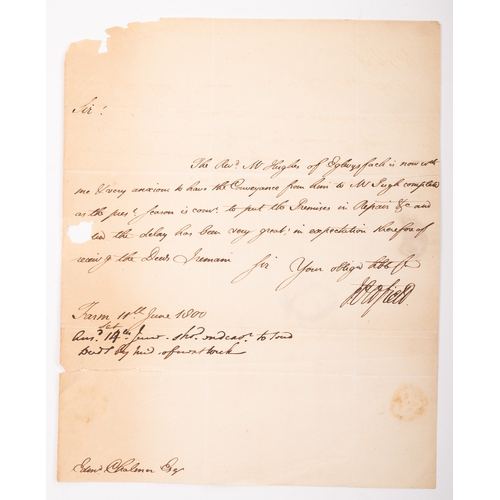 Sir!
The Revd. Mr Hughes of Eglwysfach is now with
me & very anxious to have the Conveyance from him to Mr Pugh completed
as the prest. Season is conv. to put the Premises in Repair &c and
the delay has been very great. in expectation therefore of
receivg the Deeds I remain Sir Your obligd. hble St
Farm 11th June 1800
Ansd. 14th June
Deeds by mid. of next week
Edwd. Chalmer Esq